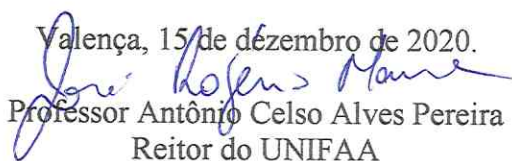 Valença, 15 de dezembro de 2020.
José Rogério Moura
Professor Antônio Celso Alves Pereira
Reitor do UNIFAA